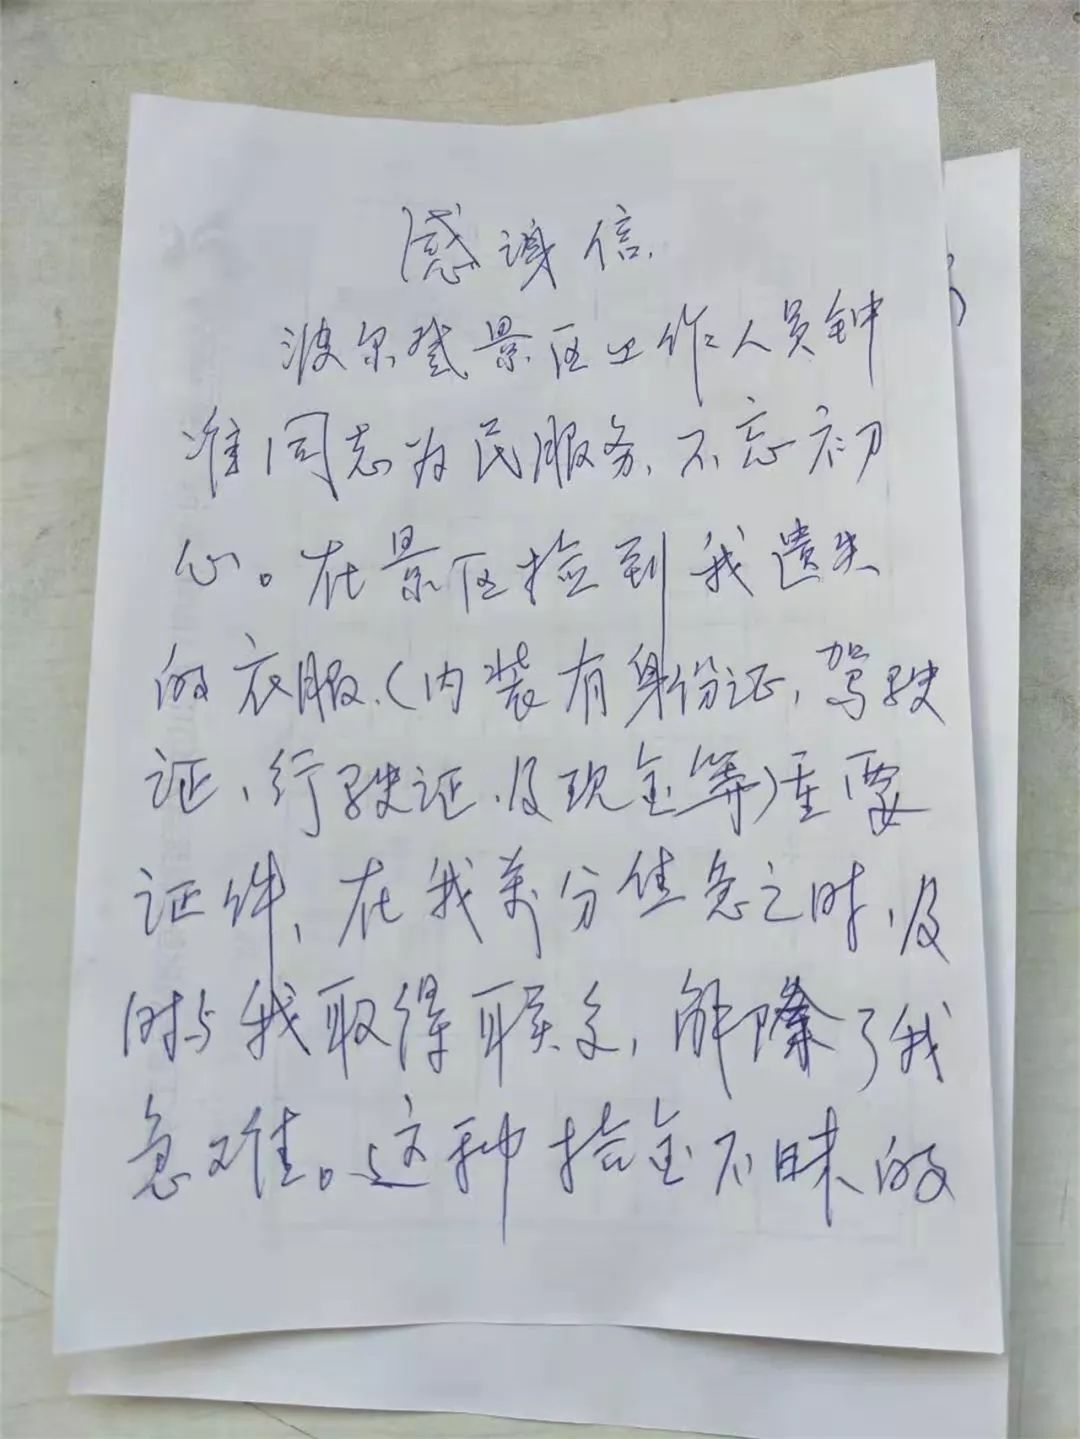 感谢信
波尔登景区工作人员钟
准同志为民服务、不忘初
心。在景区捡到我遗失
的衣服、(内装有身份证,驾驶
证、行驶证、及现金等)重要
证件,在我万分焦急之时,及
时与我取得联系,解除了我
急难。这种拾金不昧的